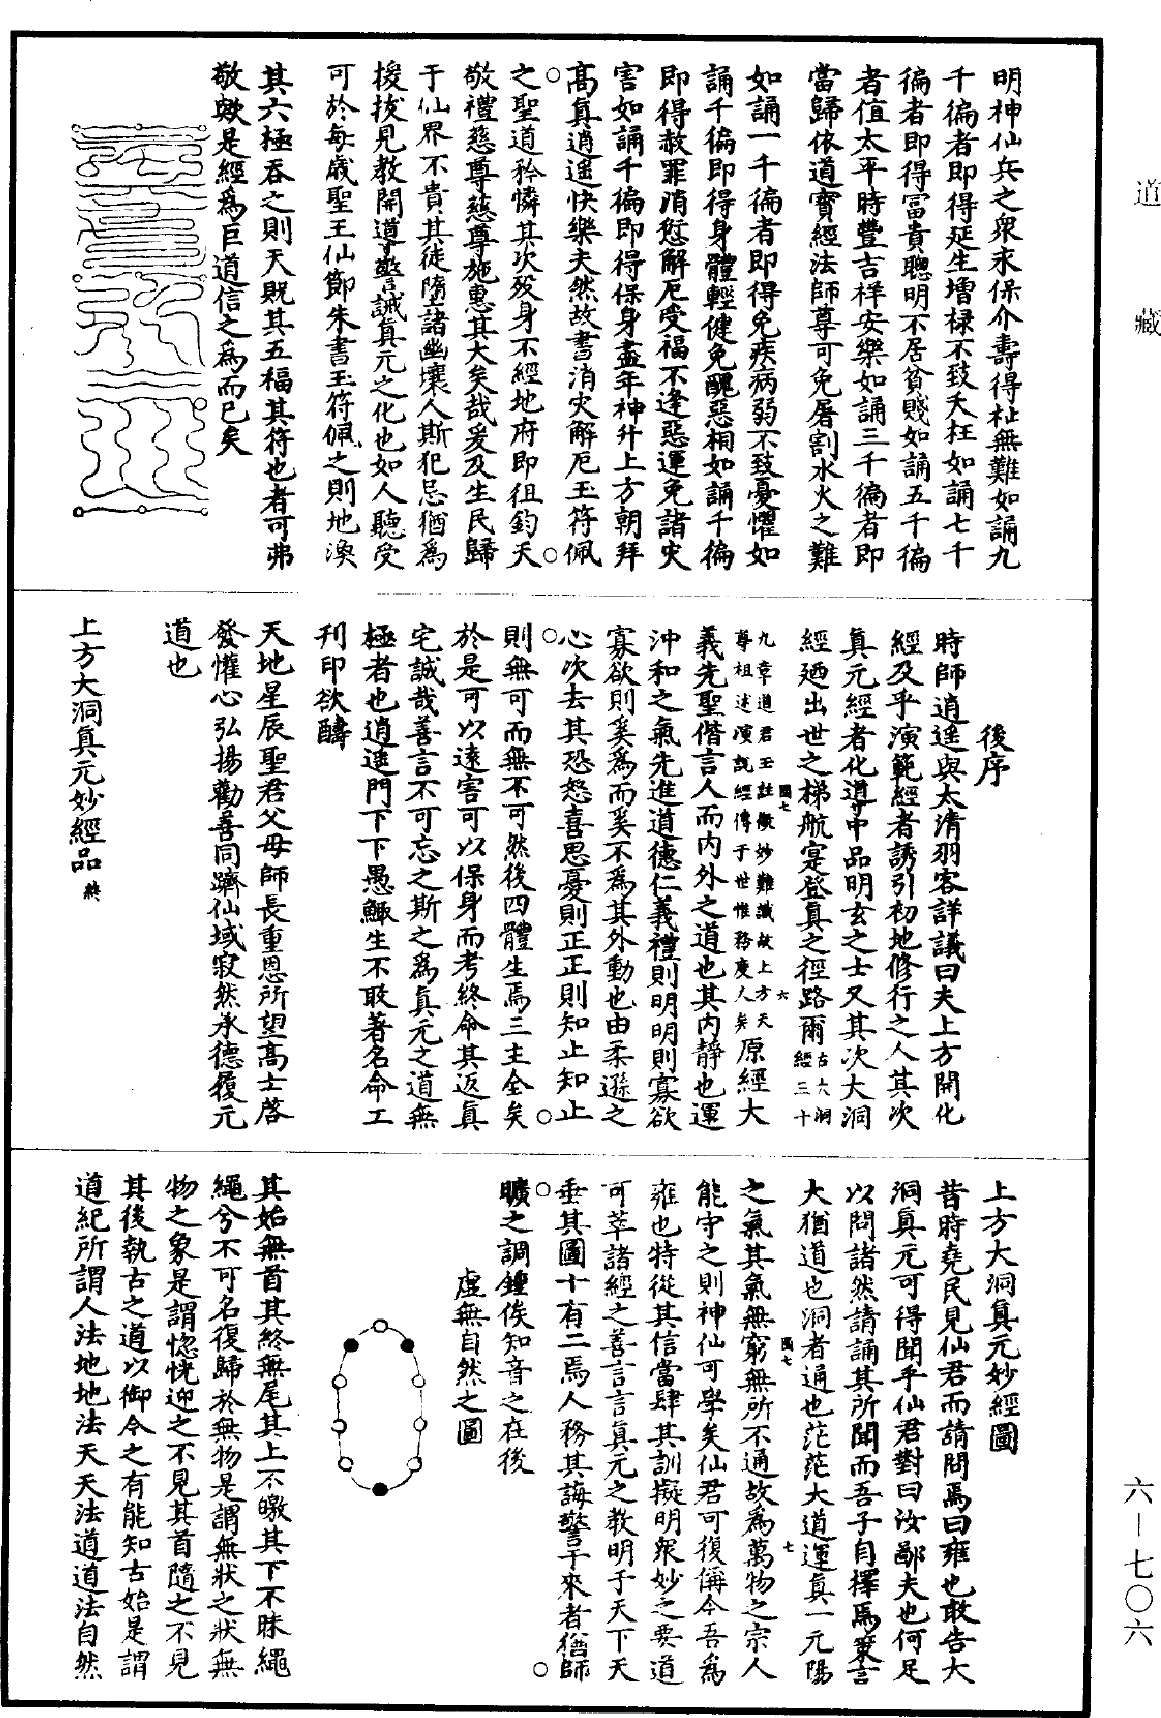 道藏
六—七〇六
明神仙兵之衆永保介壽得祉無難如誦九
千徧者即得延生增祿不致夭枉如誦七千
徧者即得富貴聰明不居貧賤如誦五千徧
者值太平時豐吉祥安樂如誦三千徧者即
當歸依道寶經法師尊可免屠割水火之難
如誦一千徧者即得免疾病弱不致憂懼如
誦千徧即得身體輕健免醜惡相如誦千徧
即得赦罪消愆解厄受福不逢惡運免諸災
害如誦千徧即得保身盡年神升上方朝拜
高真逍遥快樂夫然故書消災解厄玉符佩
之聖道矜憐其次歿身不經地府即徂鈞天
敬禮慈尊慈尊施惠其大矣哉爰及生民歸
于仙界不貴其徒墮諸幽壤人斯犯忌猶爲
援拔見教開導警誡真元之化也如人聽受
可於每歲聖王仙節朱書玉符佩之則地渙
其六極吞之則天貺其五福其符也者可弗
敬歟是經爲巨道信之爲而已矣
後序
時師逍遥與太清羽客詳議曰夫上方開化
經及乎演範經者誘引初地修行之人其次
真元經者化導中品明玄之士又其次大洞
經廼出世之梯航寔登真之徑路爾古大洞經三十
九章道君玉註微妙難議故上方天尊祖述演説經傳于世惟務度人矣原經大
義先聖偕言人而内外之道也其内靜也運
沖和之氣先進道德仁義禮則明明則寡欲
寡欲則奚爲而奚不爲其外動也由柔遜之
心次去其恐怒喜思憂則正正則知止知止
則無可而無不可然後四體生焉三主全矣
於是可以遠害可以保身而考終命其返真
宅誠哉善言不可忘之斯之爲真元之道無
極者也逍遥門下下愚鯫生不敢著名命工
刊印欲醻
天地星辰聖君父母師長重恩所望高士啓
發懽心弘揚勸善同躋仙域寂然承德履元
道也
上方大洞真元妙經品終
國七
六
上方大洞真元妙經圖
昔時堯民見仙君而請問焉曰雍也敢告大
洞真元可得聞乎仙君對曰汝鄙夫也何足
以問諸然請誦其所聞而吾子自擇焉粟言
大猶道也洞者通也茫茫大道運真一元陽
之氣其氣無窮無所不通故爲萬物之宗人
能守之則神仙可學矣仙君可復偁今吾爲
雍也特從其信當肆其訓擬明衆妙之要道
可萃諸經之善言言真元之教明于天下天
垂其圖十有二焉人務其誨警于來者猶師
曠之調鍾俟知音之在後
國七
七
虛無自然之圖
其始無首其終無尾其上不皦其下不昧繩
繩兮不可名復歸於無物是謂無狀之狀無
物之象是謂惚恍迎之不見其首隨之不見
其後執古之道以御今之有能知古始是謂
道紀所謂人法地地法天天法道道法自然